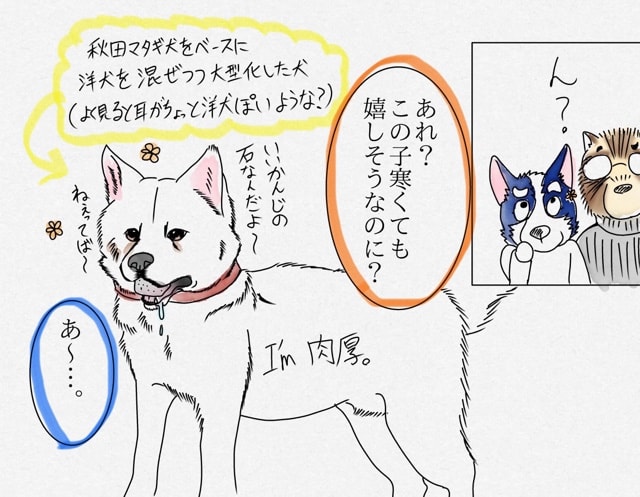 秋田マタギ犬をベースに
洋犬を混ぜつつ大型化した犬
(よく見ると耳がちょっと洋犬ぽいような?)
ん?
あれ?
この子寒くても
嬉しそうなのに?
いいかんじの
石なんだよ〜
ねぇってば〜
あ〜…。
I'm 肉厚。